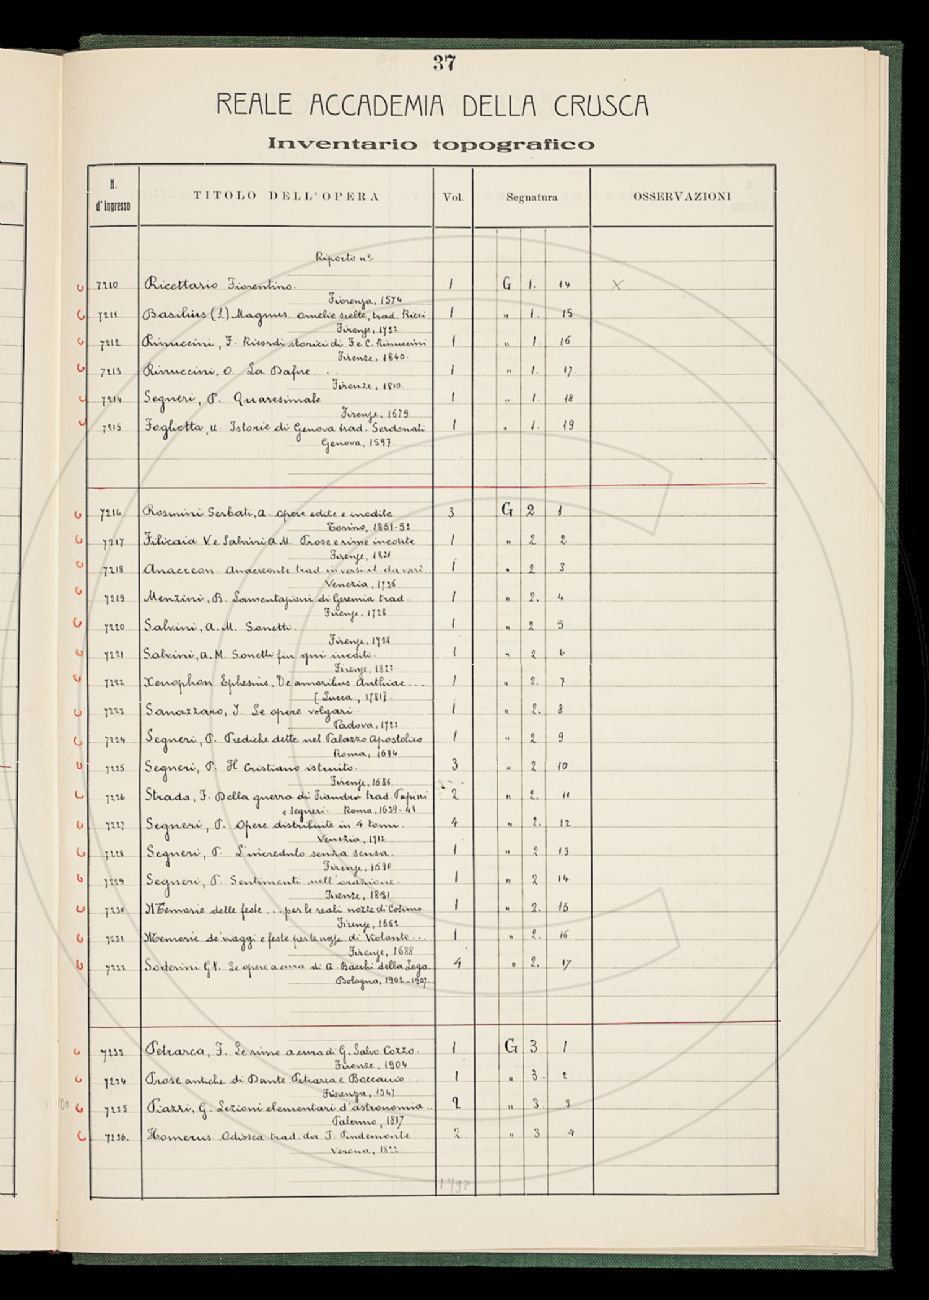 37
REALE ACCADEMIA DELLA CRUSCA
Inventario topografico
N. d'ingresso TITOLO DELL'OPERA Vol. Segnatura OSSERVAZIONI
Riporto nº
7210 Ricettario Fiorentino. 1 G 1. 14 X
Fiorenza, 1574
7211 Basilius (S.) Magnus. Omelie scelte, trad. Ricci 1 " 1. 15
Firenze, 1732
7212 Rinuccini, F. Ricordi storici di F. e C. Rinuccini 1 " 1. 16
Firenze, 1840.
7213 Rinuccini, O. La Dafne. . . 1 " 1. 17.
Firenze, 1810.
7214 Segneri, P. Quaresimale 1 " 1. 18
Firenze, 1679
7215 Foglietta, U. Istorie di Genova trad. Serdonati 1 " 1. 19
Genova, 1597.
7216 Rosmini Serbati, A. Opere edite e inedite 3 G 2 1
Torino, 1851-52
7217 Filicaia V. e Salvini A. M. Prose e rime inedite 1 " 2 2
Firenze, 1821
7218 Anacreon. Anacreonte trad. in versi it. da vari.. 1 " 2 3
Venezia, 1736
7219 Menzini, B. Lamentazioni di Geremia trad. 1 " 2. 4
Firenze, 1728
7220 Salvini, A. M. Sonetti. 1 " 2 5
Firenze, 1728
7221 Salvini, A. M. Sonetti fin qui inediti. 1 " 2 6
Firenze, 1823
7222 Xenophon Ephesius. De amoribus Anthiae.... 1 " 2. 7
[Lucca, 1781]
7223 Sanazzaro, J. Le opere volgari 1 " 2. 8
Padova, 1723
7224 Segneri, P. Prediche dette nel Palazzo Apostolico 1 " 2 9
Roma, 1694
7225 Segneri, P. Il Cristiano istruito. 3 " 2 10
Firenze, 1686
7226 Strada, F. Della guerra di Fiandra trad. Papini 2 " 2. 11
e Segneri. Roma, 1639-41
7227 Segneri, P. Opere distribuite in 4 tomi. 4 " 2. 12
Venezia, 1712
7228 Segneri, P. L'incredulo senza scusa. 1 " 2 13
Firenze, 1690
7229 Segneri, P. Sentimenti nell'orazione. 1 " 2 14
Firenze, 1831
7230 Memorie delle feste ... per le reali nozze di Cosimo 1 " 2. 15
Firenze, 1662
7231 Memorie de' viaggi e feste per le nozze di Violante... 1 " 2. 16
Firenze, 1688
7232 Soderini G. V. Le opere a cura di A. Bacchi della Lega. 4 " 2. 17
Bologna, 1902-1907.
7233 Petrarca, F. Le rime a cura di G. Salvo Cozzo. 1 G 3 1
Firenze, 1904
7234 Prose antiche di Dante Petrarca e Boccaccio ... 1 " 3. 2
Fiorenza, 1547
7235 Piazzi, G. Lezioni elementari d'astronomia.. 2 " 3. 3
Palermo, 1817
7236. Homerus Odissea trad. da I. Pindemonte 2 " 3 4
Verona, 1822